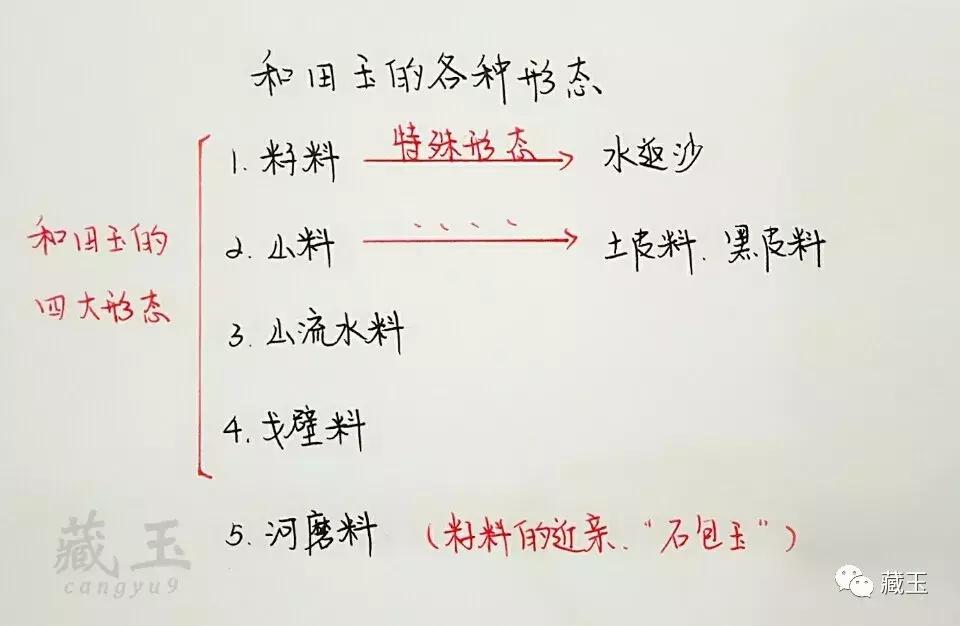 和田玉的各种形态
和田玉的
四大形态
1. 籽料 特殊形态 水返沙
2. 山料 、、、、 土皮料、黑皮料
3. 山流水料
4. 戈壁料
5. 河磨料 （籽料的近亲、“石包玉”）
藏玉
cangyu9
藏玉